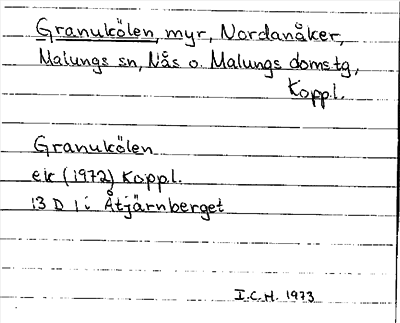 Granukölen, myr, Nordanåker,
Malungs sn, Nås o. Malungs domstg,
Koppl.
Granukölen
ek (1972) Koppl.
13 D 1 i Åtjärnberget
I.C.H. 1973